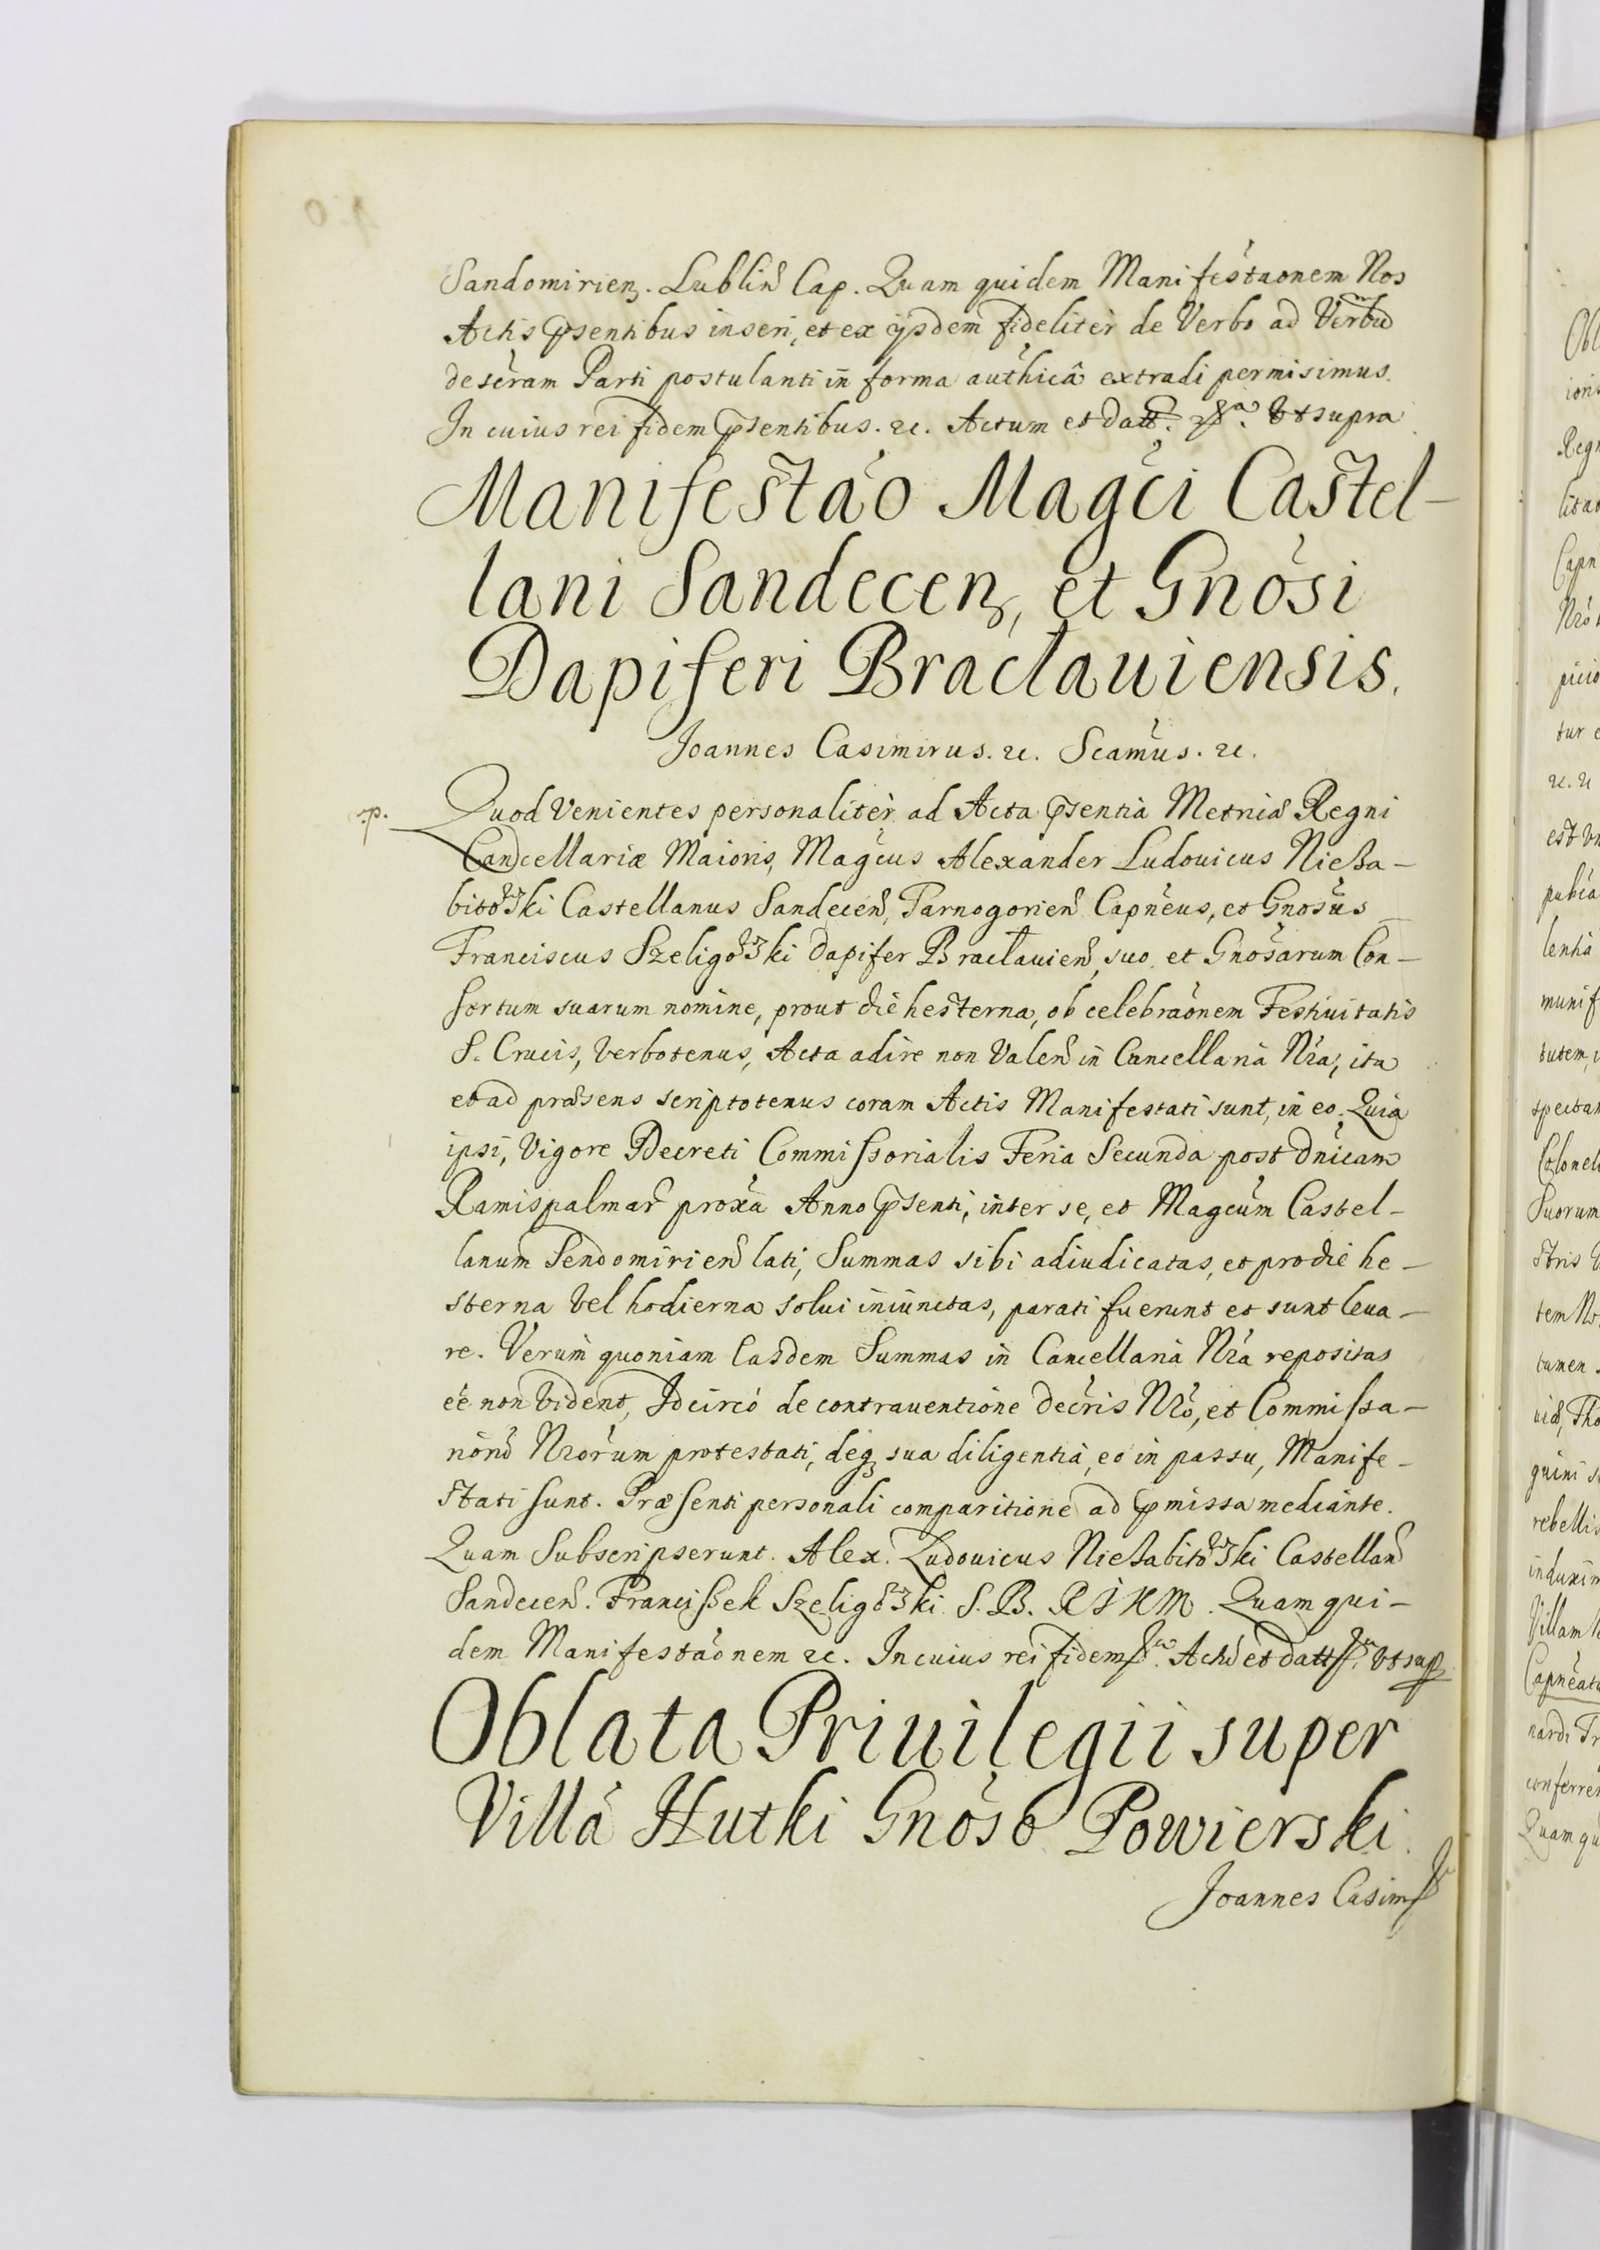 Sandomirien. Lublin Cap. Quam quidem Manifestaonem Nos
Actis psentibus inseri, et ex ijsdem fideliter de Verbo ad Verbu
descram Parti postulanti in forma authicâ extradi permisimus.
In cuius rei fidem psentibus. &c. Actum et Datt. Vt supra
Manifestao Magci Castel-
lani Sandecen, et Gnosi
Dapiferi Braclauiensis.
Joannes Casimirus. &c. Scamus. &c.
Quod Venientes personaliter ad Acta psentia Metrica Regni
Cancellariæ Maioris, Magcus Alexander Ludouicus Nieza-
bitowski Castellanus Sandecen, Tarnogorien Capneus, et Gnosus
Franciscus Szeligowski Dapifer Braclauien, suo et Gnosarum Con-
sortum suarum nomine, prout die hesterna, ob celebraonem Festiuitatis
S. Crucis, Verbotenus, Acta adire non Valen in Cancellaria Nra, ita
et ad præsens scriptotenus coram Actis Manifestati sunt, in eo. Quia
ipsi, Vigore Decreti Commissorialis Feria Secunda post Dnicam
Ramispalmar proxa Anno psenti, inter se, et Magcum Castel-
lanum Sendomirien lati, Summas sibi adiudicatas, et pro die he-
sterna Vel hodierna solui iniunctas, parati fuerunt et sunt leua-
re. Verum quoniam Easdem Summas in Cancellaria Nra repositas
ee non Vident, Idcirco de contrauentione Decris Nro, et Commissa-
riord Nrorum protestati, deq sua diligentia, eo in passu, Manife-
stati sunt. Præsenti personali comparitione ad pmissa mediante.
Quam Subscripserunt. Alex. Ludouicus Niezabitowski Castellan
Sandecen. Franciszek Szeligowski S. B. R J K M. Quam qui-
dem Manifestaonem &c. In cuius rei fidem. Actu et datt. Vt sup
Oblata Priuilegii super
Villa Hutki Gnoso Powierski
Joannes Casim